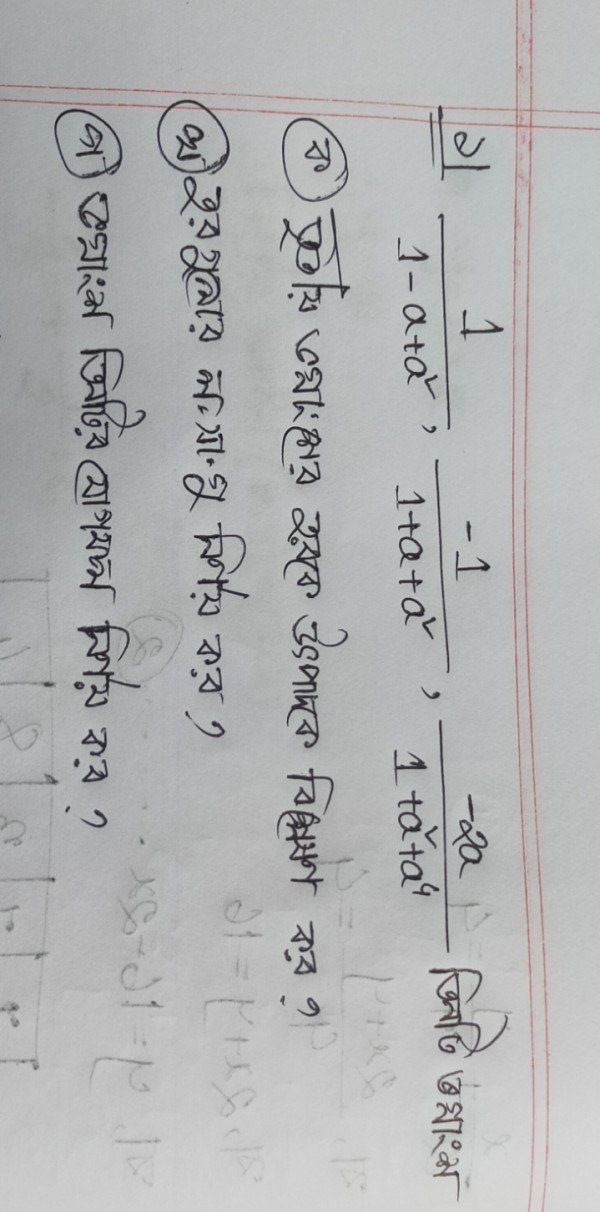 ১। 1/1-a+a², -1/1+a+a², -2a/1+a²+a⁴ তিনটি ভগ্নাংশ
ক) তৃতীয় ভগ্নাংশের হরকে উৎপাদকে বিশ্লেষণ কর ?
খ) হরগুলোর ল.সা.গু নির্ণয় কর ?
গ) ভগ্নাংশ তিনটির যোগফল নির্ণয় কর ?